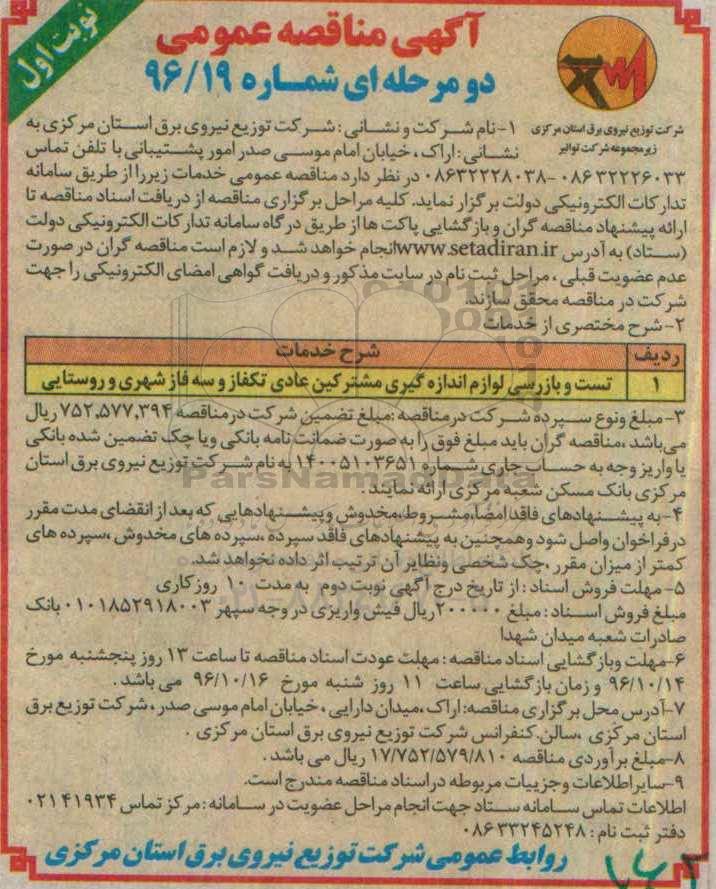 نوبت اول
آگهی مناقصه عمومی
دو مرحله ای شماره ۹۶/۱۹
شرکت توزیع نیروی برق استان مرکزی
زیرمجموعه شرکت توانیر
۱-نام شرکت و نشانی : شرکت توزیع نیروی برق استان مرکزی به
نشانی : اراک ، خیابان امام موسی صدر امور پشتیبانی با تلفن تماس
۰۸۶۳۲۲۲۶۰۳۳ -۰۸۶۳۲۲۲۸۰۳۸ در نظر دارد مناقصه عمومی خدمات زیر را از طریق سامانه
تدارکات الکترونیکی دولت برگزار نماید. کلیه مراحل برگزاری مناقصه از دریافت اسناد مناقصه تا
ارائه پیشنهاد مناقصه گران و بازگشایی پاکت ها از طریق درگاه سامانه تدارکات الکترونیکی دولت
(ستاد) به آدرس www.setadiran.ir انجام خواهد شد و لازم است مناقصه گران در صورت
عدم عضویت قبلی ، مراحل ثبت نام در سایت مذکور و دریافت گواهی امضای الکترونیکی را جهت
شرکت در مناقصه محقق سازند.
۲- شرح مختصری از خدمات
ردیف شرح خدمات
۱ تست و بازرسی لوازم اندازه گیری مشترکین عادی تکفاز و سه فاز شهری و روستایی
۳- مبلغ ونوع سپرده شرکت درمناقصه :مبلغ تضمین شرکت درمناقصه ۷۵۲,۵۷۷,۳۹۴ ریال
می باشد ،مناقصه گران باید مبلغ فوق را به صورت ضمانت نامه بانکی ویا چک تضمین شده بانکی
یا واریز وجه به حساب جاری شماره ۱۴۰۰۵۱۰۳۶۵۱ به نام شرکت توزیع نیروی برق استان
مرکزی بانک مسکن شعبه مرکزی ارائه نمایند .
ParsNamadData
۴- به پیشنهادهای فاقد امضا،مشروط،مخدوش وپیشنهادهایی که بعد از انقضای مدت مقرر
درفراخوان واصل شود وهمچنین به پیشنهادهای فاقد سپرده ،سپرده های مخدوش ،سپرده های
کمتر از میزان مقرر ،چک شخصی ونظایر آن ترتیب اثر داده نخواهد شد.
۵- مهلت فروش اسناد : از تاریخ درج آگهی نوبت دوم به مدت ۱۰ روز کاری
مبلغ فروش اسناد : مبلغ ۲۰۰۰۰۰ ریال فیش واریزی در وجه سپهر ۰۱۰۱۸۵۲۹۱۸۰۰۳ بانک
صادرات شعبه میدان شهدا
۶-مهلت وبازگشایی اسناد مناقصه : مهلت عودت اسناد مناقصه تا ساعت ۱۳ روز پنجشنبه مورخ
۹۶/۱۰/۱۴ و زمان بازگشایی ساعت ۱۱ روز شنبه مورخ ۹۶/۱۰/۱۶ می باشد .
۷-آدرس محل برگزاری مناقصه: اراک ،میدان دارایی ، خیابان امام موسی صدر ، شرکت توزیع برق
استان مرکزی ،سالن کنفرانس شرکت توزیع نیروی برق استان مرکزی .
۸-مبلغ برآوردی مناقصه ۱۷/۷۵۲/۵۷۹/۸۱۰ ریال می باشد .
۹-سایر اطلاعات وجزییات مربوطه دراسناد مناقصه مندرج است.
اطلاعات تماس سامانه ستاد جهت انجام مراحل عضویت در سامانه : مرکز تماس ۰۲۱۴۱۹۳۴
دفتر ثبت نام : ۰۸۶۳۳۲۴۵۲۴۸
روابط عمومی شرکت توزیع نیروی برق استان مرکزی